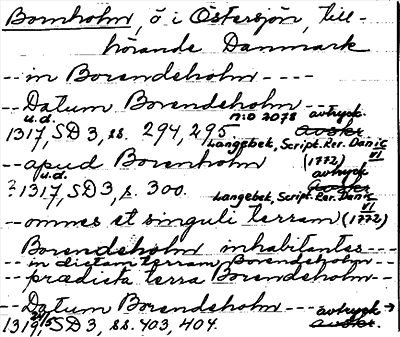 Bornholm, ö i Östersjön, till-
hörande Danmark
-- in Borendeholm ----
-- Datum Borendeholm ---
u.d. n:o 2078 avtryck.
1317, SD 3, ss. 294, 295. avskr.
Langebek, Script. Rer. Danic VI
-- apud Borenholm (1772)
u.d. avtryck
? 1317, SD 3, s. 300. avskr.
Langebek, Script. Rer. Danic VI
-- omnes et singuli terram (1772)
Borendeholm inhabitantes ---
-- in dictam terram Borendeholm ---
-- prædicta terra Borendeholm --
-- Datum Borendeholm --- avtryck →
1319, SD 3, ss. 403, 404. avskr.